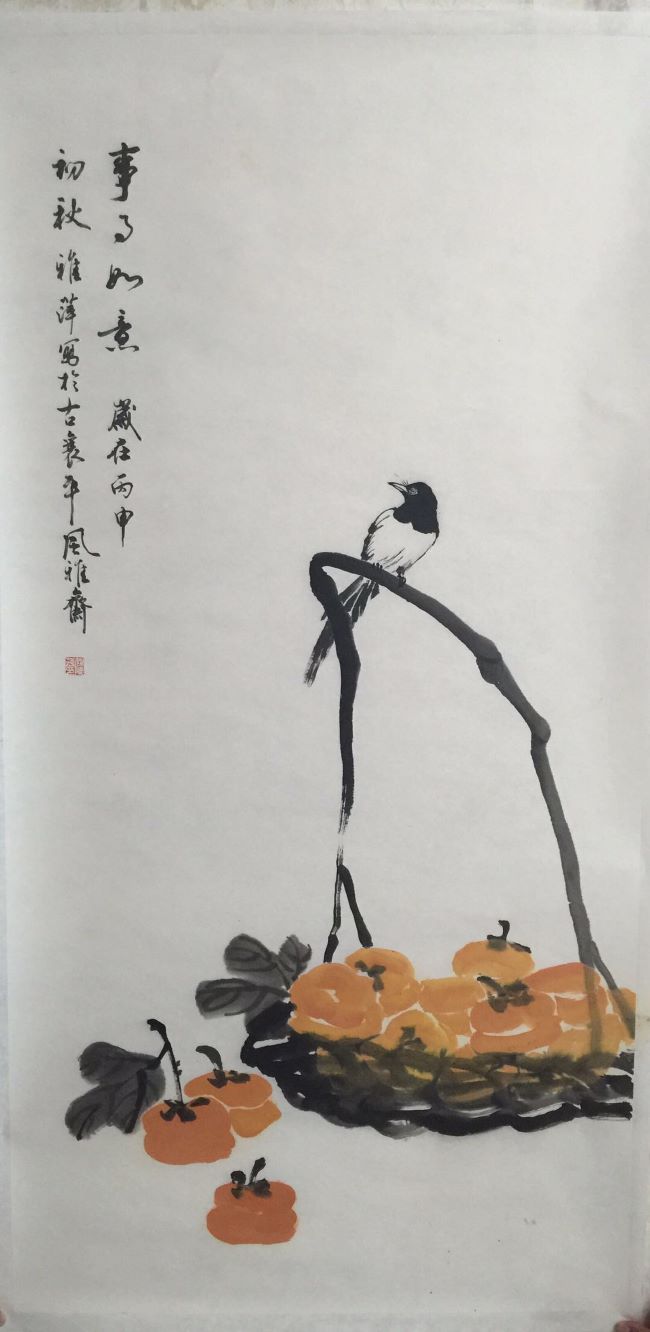 事事如意 歲在丙申
初秋 雅萍寫於古襄平風雅齋